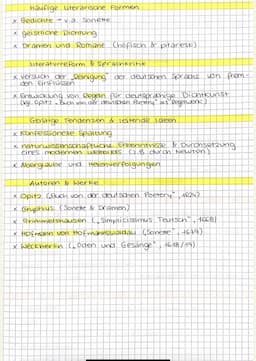 Häufige literarische Formen
x Gedichte - v.a. Sonette
x geistliche Dichtung
x Dramen und Romane (höfisch & pikaresk)
Literaturreform & Sprachkritik
x Versuch der „Reinigung" der deutschen Sprache von frem-
den Einflüssen
x Entwicklung von Regeln für deutschsprachige Dichtkunst
(vgl. Opitz „Buch von der deutschen Poeterey" als Regelwerk)
Geistige Tendenzen & leitende Ideen
x Konfessionelle Spaltung
x naturwissenschaftliche Erkenntnisse & Durchsetzung
eines modernen Weltbildes (z.B. durch Newton)
x Aberglaube und Hexenverfolgungen
Autoren & Werke
x Opitz („Buch von der deutschen Poeterey", 1624)
x Gryphius (Sonette & Dramen)
x Grimmelshausen („Simplicissimus Teutsch", 1668)
x Hofmann von Hofmannswaldau („Sonette", 1679)
x Weckherlin („Oden und Gesänge", 1618/19)